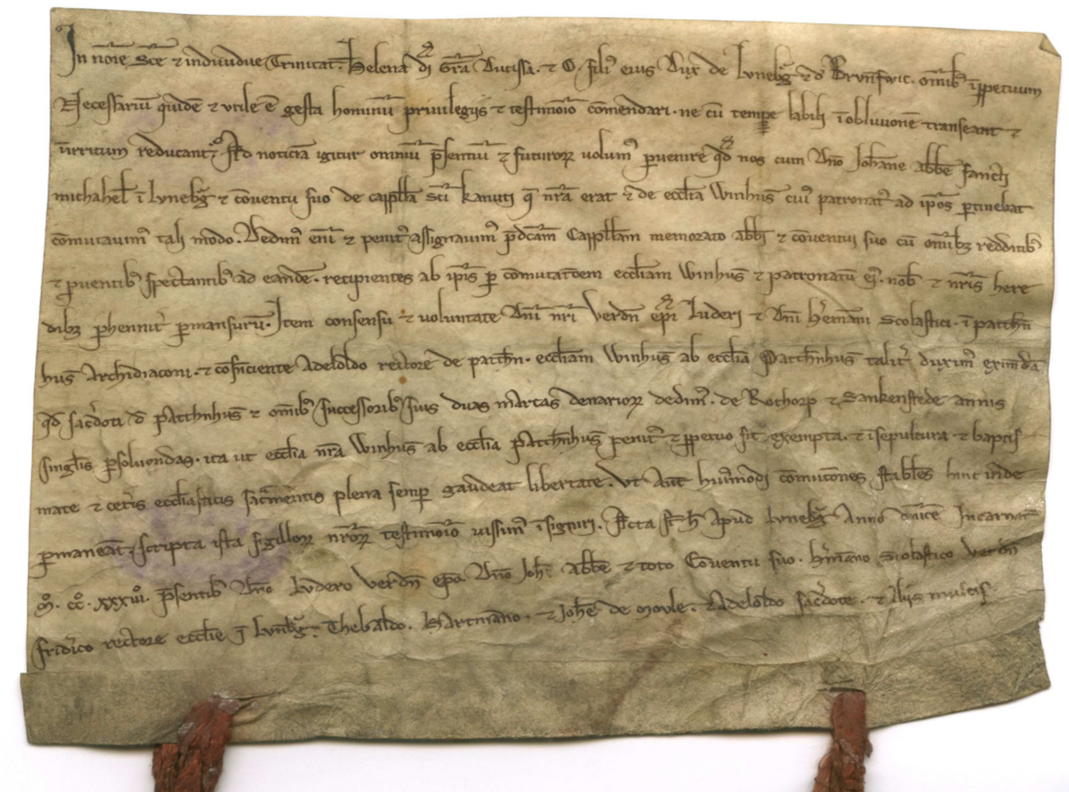 In nōie Sce ⁊ indiuidue Trinitat̄. Helena dī Gr̄a Ducissa. ⁊ O. fili⁹ eius Dux de Lvneb̄g ⁊ d̄ Brvnswic. omīb⁹ īp̱petuum
Necessariū quidē ⁊ vtile ē gesta hominū priuilegijs ⁊ testimōio cōmendari. ne cū temp̱e labili ī obliuionē transeant ⁊
ī irritum reducant᷑. Ad noticiā igitur omniū p̄sentiū ⁊ futuroꝝ volum⁹ p̱uenire qd̄ nos cum Dn̄o Johāne abb̄e sancti
michahel̄ ī Lvneb̄g ⁊ cōuentu suo de capp̄lla Sc̄i Kanuti q̄ nr̄a erat ⁊ de eccl̄ia Winhus̄ cui⁹ patronat⁹ ad ip̄os p̱tinebat
cōmutauim⁹ tali modo. Dedim⁹ eni᷑ ⁊ penit⁹ assignauim⁹ p̄dcām Capp̄llam memorato abb̄i ⁊ cōuentui suo cū omīb⁹ redditib⁹
⁊ p̱uentib⁹ spectantib⁹ ad eandē. recipientes ab ip̄is p̱ cōmutatōem eccl̄iam Winhus̄ ⁊ patronatū ei⁹. nob̄ ⁊ nr̄is here
dibꝫ p̱hennit᷑ p̱mansurū. Item consensu ⁊ voluntate Dn̄i nr̄i Verdn̄ ep̄i Luderi ⁊ Dn̄i h̄emāni Scolastici. ī patth̄n
hus̄ Archidiaconi. ⁊ cōsn̄ciente Adelōldo rectore de patth̄n. eccl̄iam Winhus̄ ab eccl̄ia Patth̄nhus̄ talit᷑ duxim⁹ eximēdā
qd̄ sac̄doti d̄ Patthnhus̄ ⁊ omīb⁹ successorib⁹ suis duas marcas denarioꝝ dedim⁹. de Rothorp ⁊ Dankenstede annis
singlīs p̱soluendas. ita ut eccl̄ia nr̄a Winhus̄ ab eccl̄ia patth̄nhus̄ penit⁹ ⁊ īp̱petuo sit exempta. ⁊ ī sepultura ⁊ baptis
mate ⁊ cet̄is eccl̄iasticis sac̄mentis plena semp̱ gaudeat libertate. Vt Aut̄ hui⁹modi cōmutōnes stabl̄es hinc inde
p̱maneāt. scripta ista sigilloꝝ nr̄oꝝ testimōio iussim⁹ īsigniri. Acta s̄t h̄ Apud Lvneb̄g Anno dn̄ice Incarnat̄
m̊. cc̊. xxxiii̊. p̄sentib⁹ Dn̄o Lvdero Verdn̄ ep̄o. Dn̄o Joh̄. abb̄e ⁊ toto Cōuentu suo. h̄mano Scolastico verdn̄
Frid̄ico rectore eccl̄ie ī Lvnb̄g. Thebaldo. Hartmāno. ⁊ Joh̄e de movle. ⁊ Adelōldo sac̄dote. ⁊ Alijs multis.